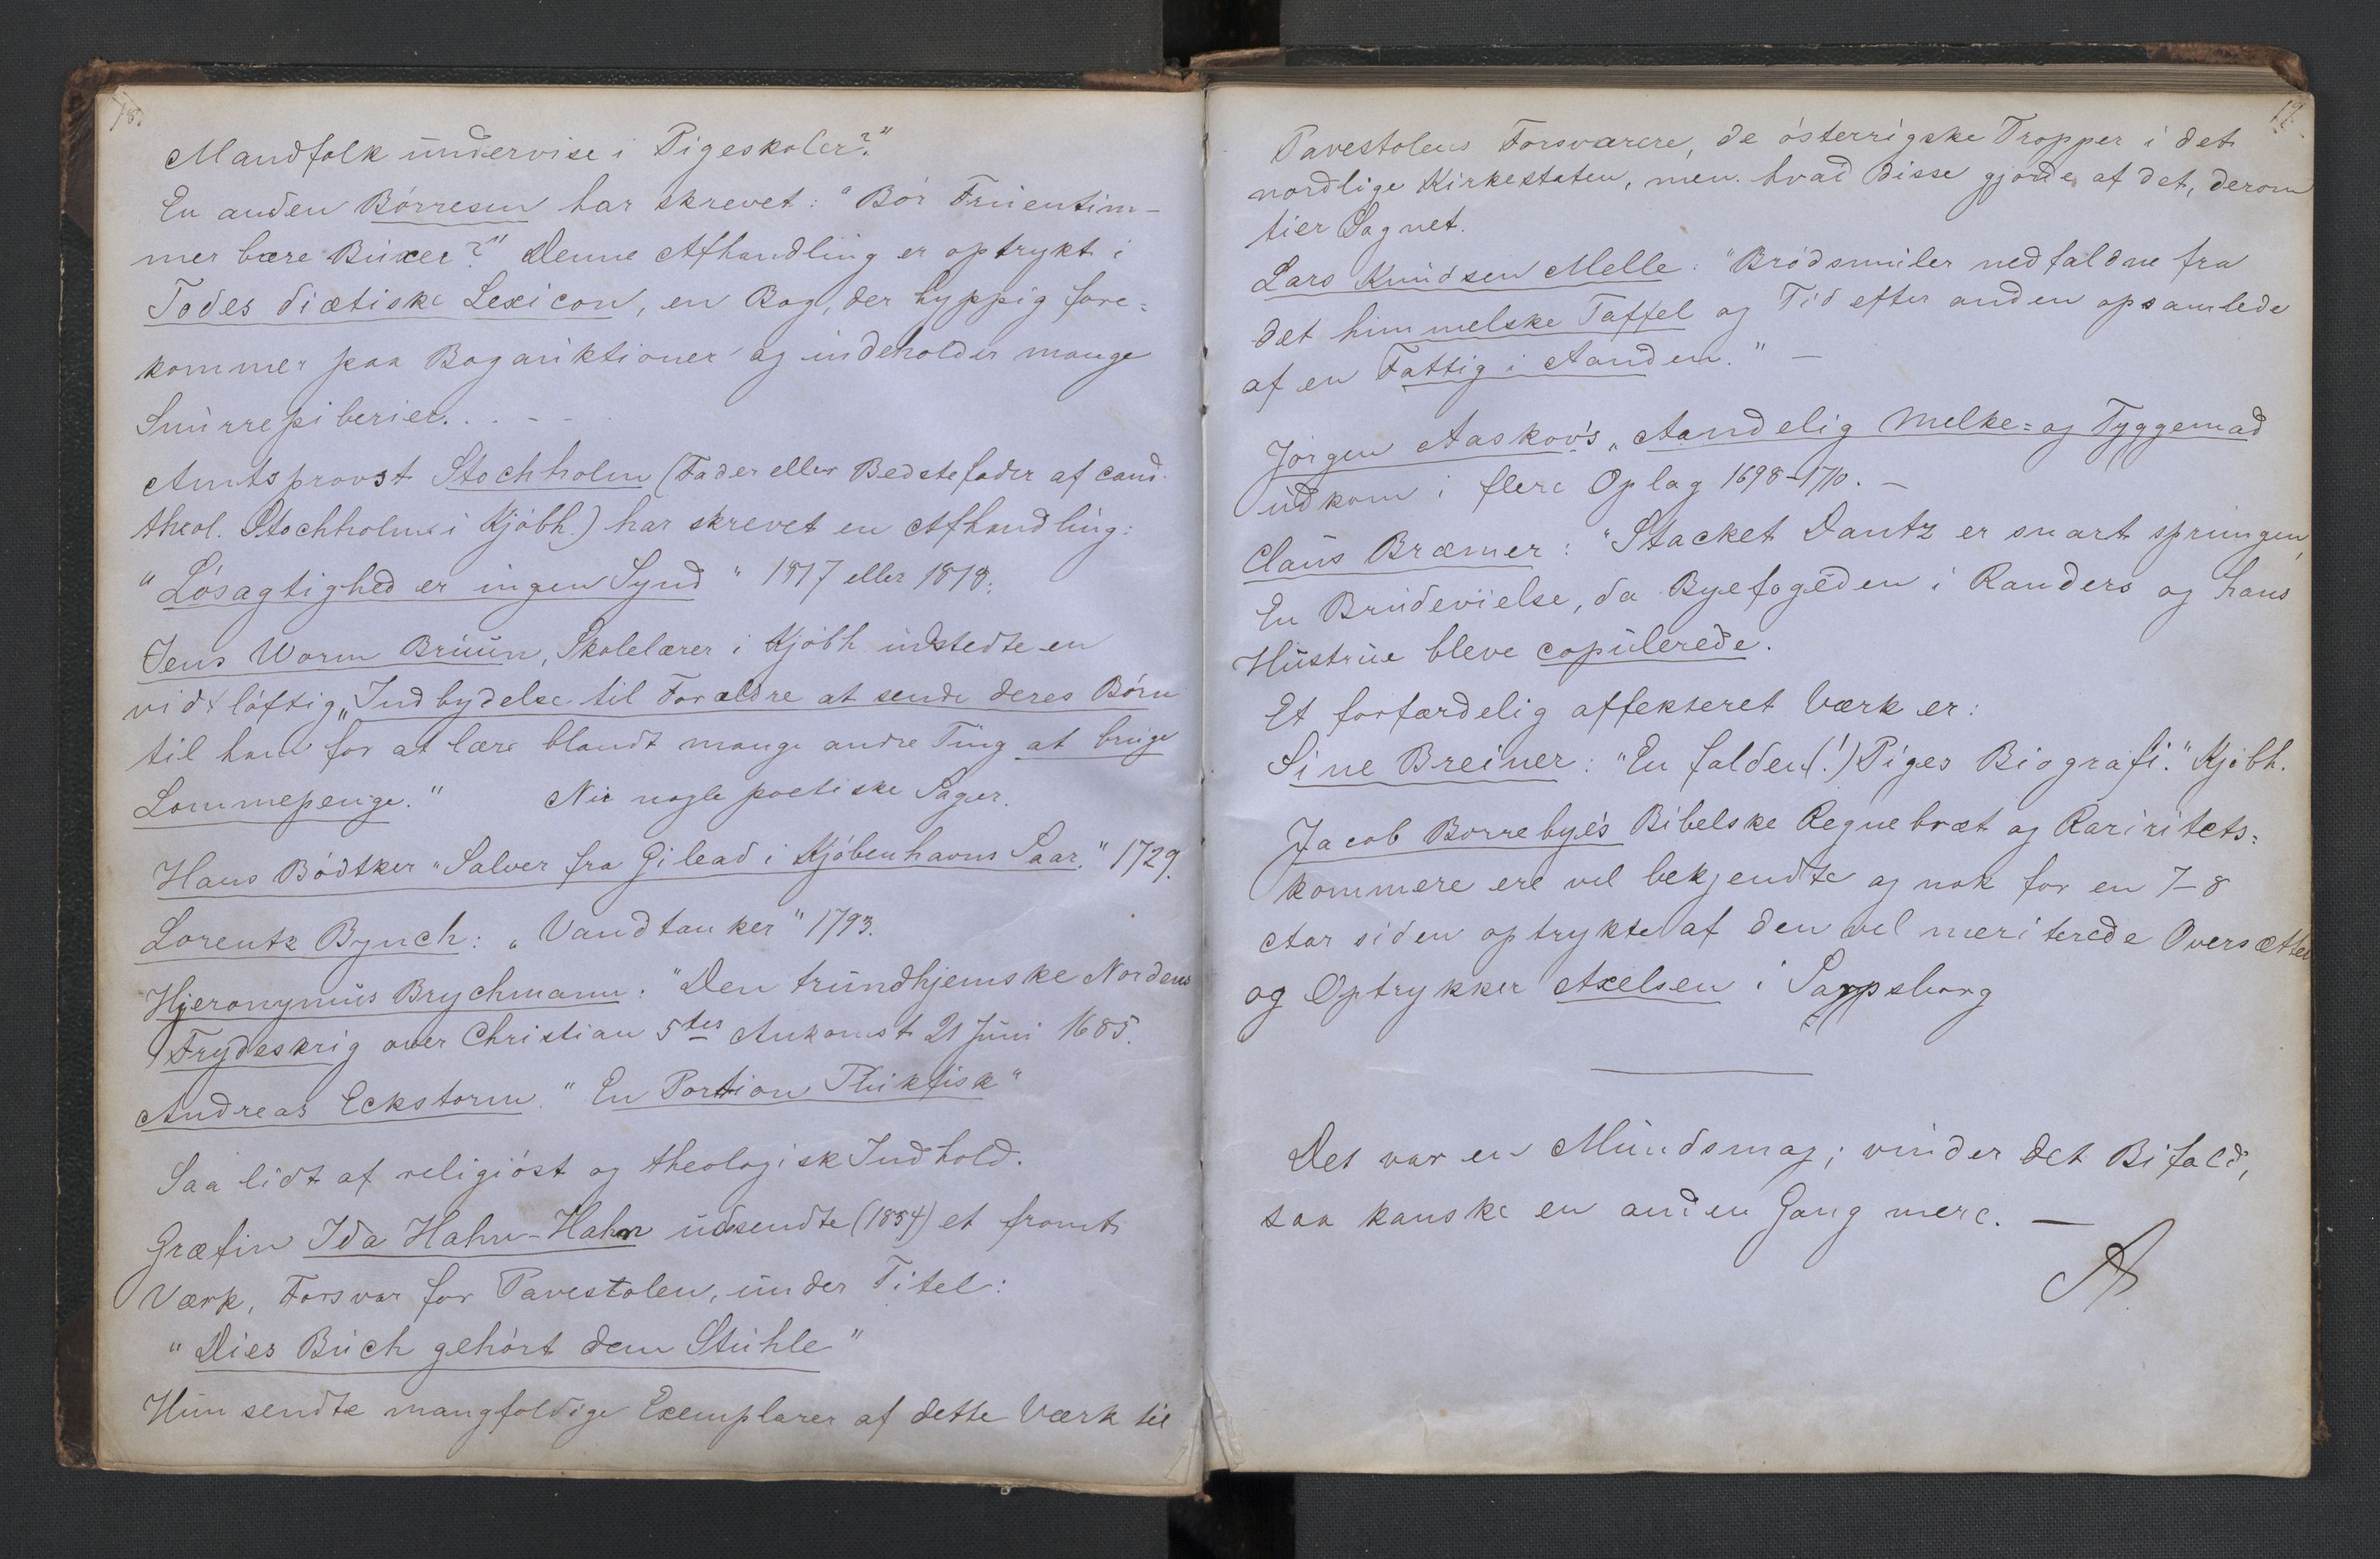 18.
Mandfolk undervise i Pigeskoler?"
En anden Börresen har skrevet: "Bör Fruentim-
mer bære Buxer?" Denne Afhandling er optrykt i
Todes diætiske Lexicon, en Bog, der hyppig fore=
kommer paa Bogauktioner og indeholder mange
Snurrepiberier. . . - -
Amtsprovst Stochholm (Fader eller Bedstefader af cand.
theol. Stochholm i Kjöbh.) har skrevet en Afhandling:
"Lösagtighed er ingen Synd" 1817 eller 1818.
Jens Worm Bruun, Skolelærer i Kjöbh. udstedte en
vidtlöftig „Indbydelse til Forældre at sende deres Börn
til ham for at lære blandt mange andre Ting at bruge
Lommepenge." Nu nogle poetiske Sager.
Hans Bödtker "Salver fra Gilead i Kjöbenhavns Saar." 1729.
Lorentz Bynch: „Vandtanker" 1793.
Hjeronymus Brychmann: "Den trundhjemske Nordens
Frydeskrig over Christian 5tes Ankomst 21 Juni 1685.
Andreas Eckstorm. "En Portion Pluktisk"
Saa lidt af religiöst og theologisk Indhold.
Græfin Ida Hahn-Hahn udsendte (1854) et fromt
Værk, Forsvar for Pavestolen, under Titel:
"Dies Buch gehört dem Stuhle"
Hun sendte mangfoldige Exemplarer af dette Værk til
19.
Pavestolens Forsvarere, de österrigske Tropper i det
nordlige Kirkestaten, men hvad disse gjorde af det, derom
tier Sagnet.
Lars Knudsen Melle: "Brödsmuler nedfaldne fra
det himmelske Taffel og Tid efter anden opsamlede
af en Fattig i Aanden." —
Jörgen Aaskov's „Aandelig Melke= og Tyggemad
udkom i flere Oplag 1698-1710. —
Claus Bræmer: "Stacket Dantz er snart sprungen,
En Brudevielse, da Byefogeden i Randers og hans
Hustrue bleve copulerede.
Et forfærdelig affekteret Værk er:
Sine Breiner: "En falden (!) Piges Biografi." Kjöbh.
Jacob Borrebye's Bibelske Regnebræt og Rariritets=
kommere ere vel bekjendte og nok for en 7-8
Aar siden optrykte af den vel meriterede Oversætter
og Optrykker Axelsen i Sarpsborg
Det var en Mundsmag; vinder det Bifald,
saa kanske en anden Gang mere. —
A.